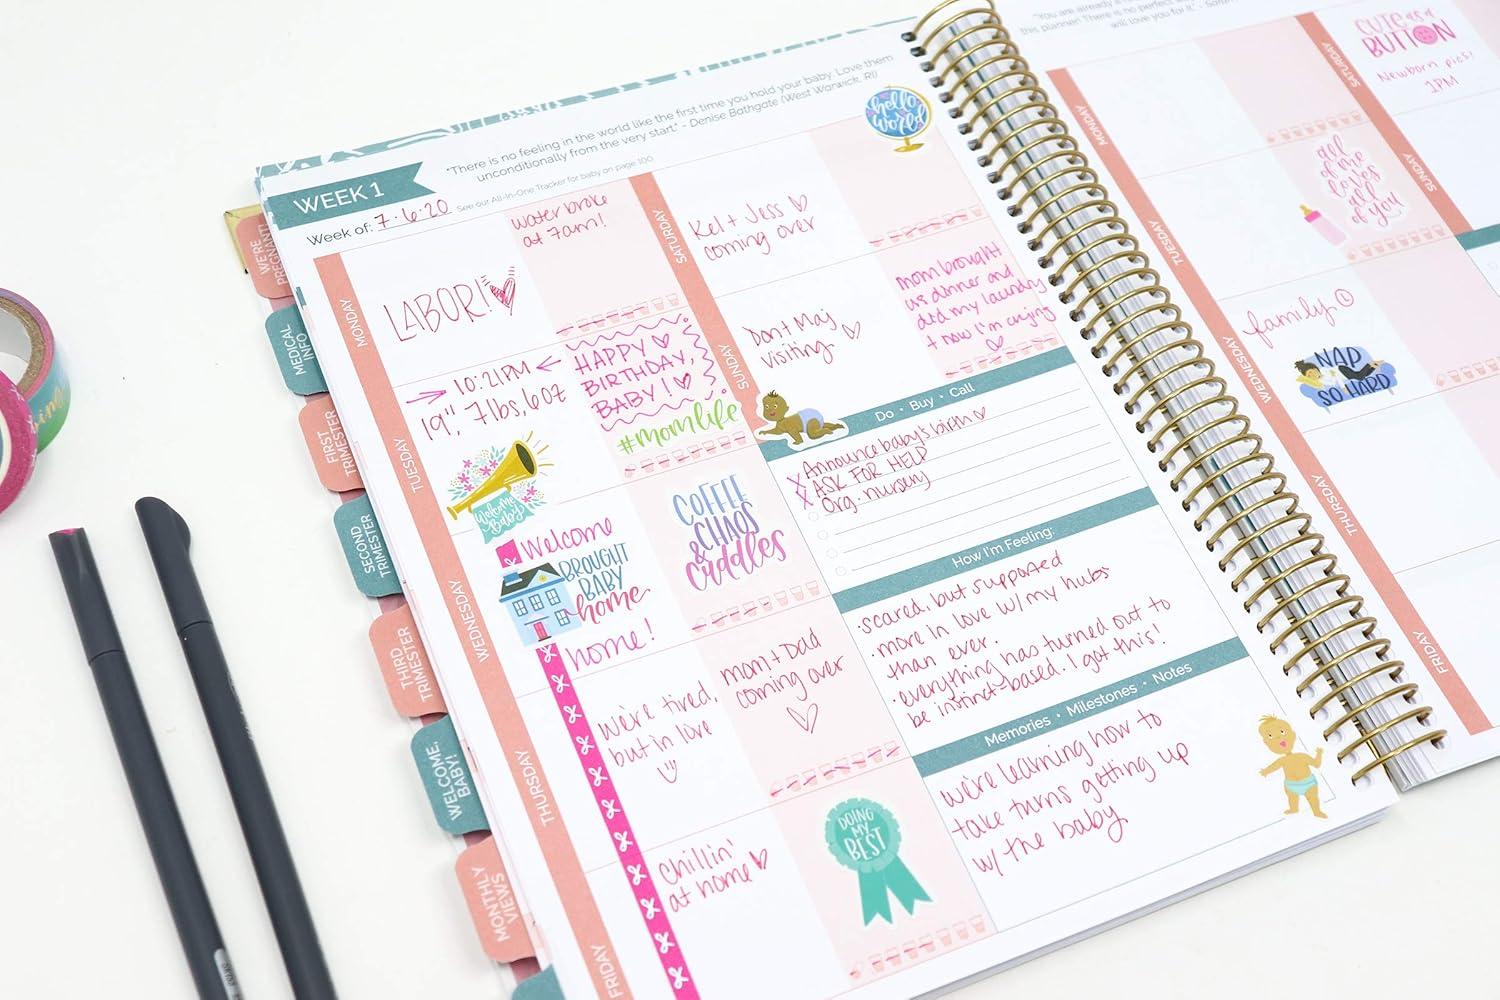 WEEK 1
"There is no feeling in the world like the first time you hold your baby. Love them
unconditionally from the very start." - Denise Bathgate (West Warwick, RI)
See our All-In-One Tracker for baby on page 100
Week of: 7.6.20
hello
world
MONDAY
LABOR!
water broke
at 7am!
TUESDAY
10:21PM
19", 7lbs, 6oz
HAPPY
BIRTHDAY,
BABY!
#momlife
Welcome
Baby
WEDNESDAY
Welcome
BROUGHT
BABY
home
home!
COFFEE
CHAOS
&
Cuddles
THURSDAY
We're tired,
but in love
mom + Dad
coming over
FRIDAY
Chillin'
at home
DOING
MY
BEST
SATURDAY
Kel + Jess
coming over
SUNDAY
Dont Maj
visiting
mom brought
us dinner and
did my laundry
+ now I'm crying
Do • Buy • Call
Announce baby's birth
ASK FOR HELP
Org. nursery
How I'm Feeling:
·scared, but supported
·more in love w/ my hubs
than ever.
·everything has turned out to
be instinct-based. I got this!
Memories • Milestones • Notes
We're learning how to
take turns getting up
w/ the baby
WE'RE
PREGNANT!
MEDICAL
INFO
FIRST
TRIMESTER
SECOND
TRIMESTER
THIRD
TRIMESTER
WELCOME,
BABY!
MONTHLY
VIEWS
will love you for it." -
MONDAY
TUESDAY
all
of me
loves
all
of you
WEDNESDAY
family
NAP
SO HARD
THURSDAY
FRIDAY
SATURDAY
CUTE as a
BUTTON
Newborn pics!
1PM
SUNDAY